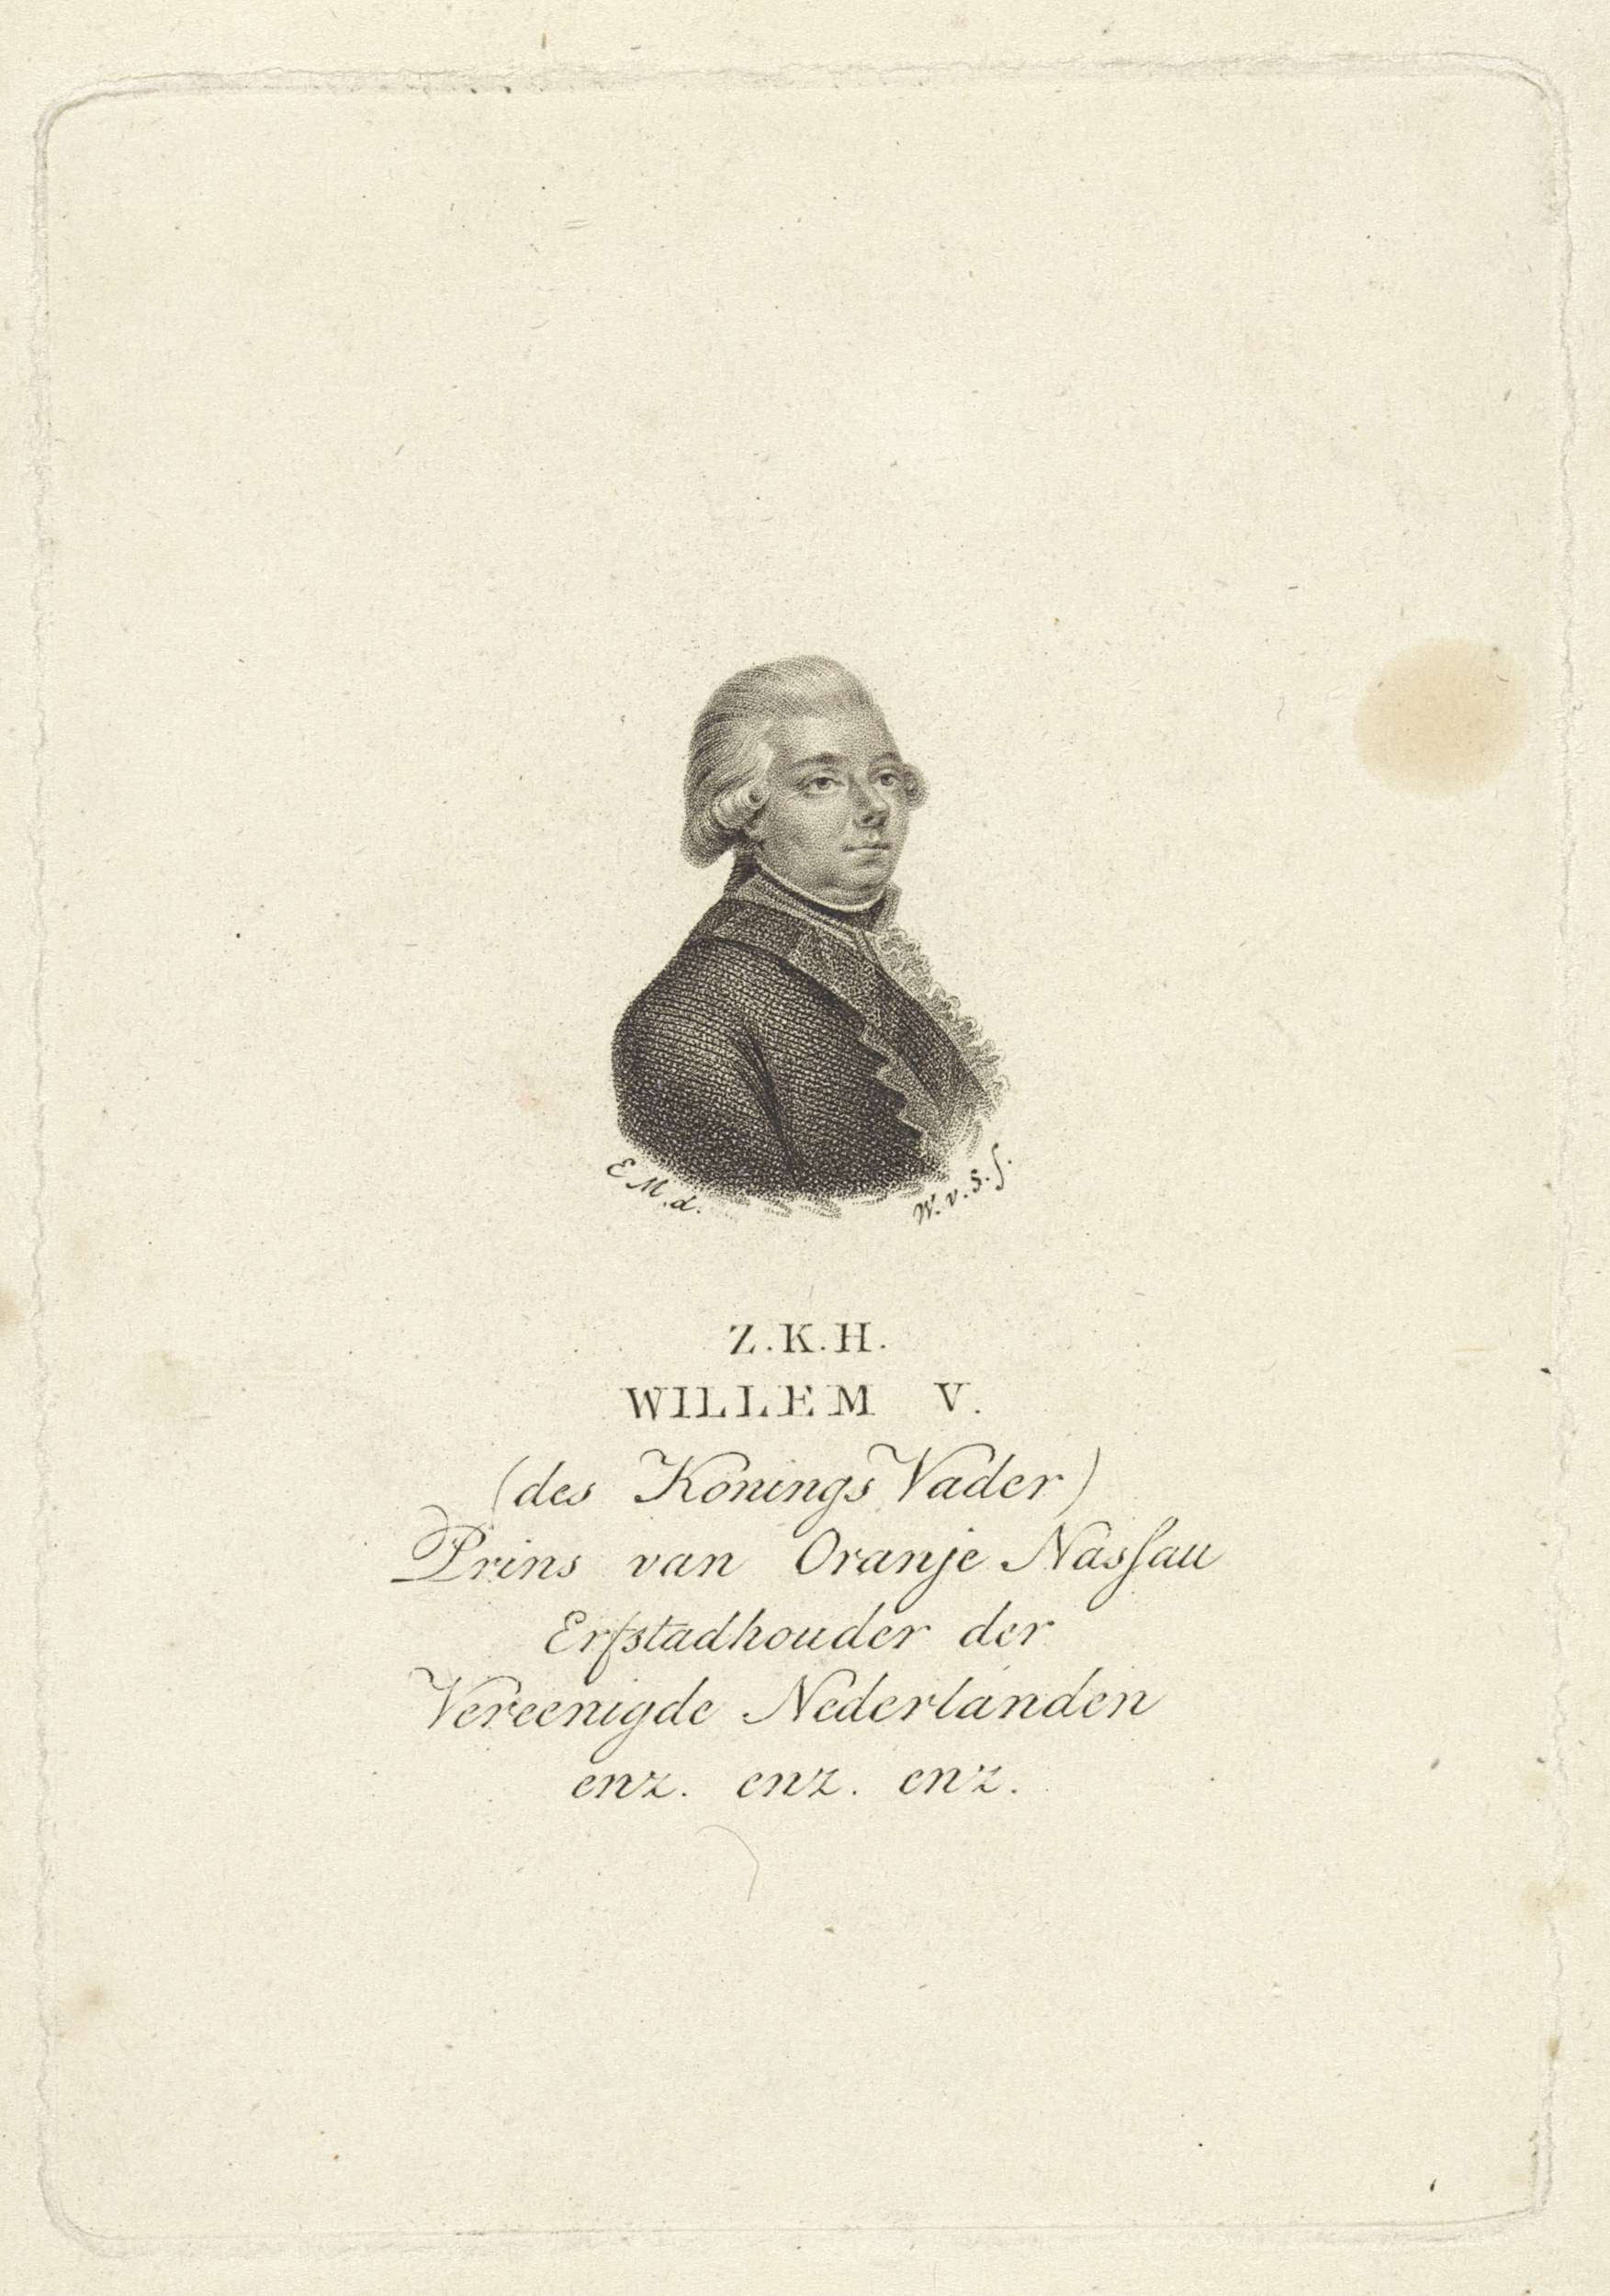 E M. d.
W. v. S. f.
Z. K. H.
WILLEM V.
(des Konings Vader)
Prins van Oranje Nasſau
Erfstadhouder der
Vereenigde Nederlanden
enz. enz. enz.